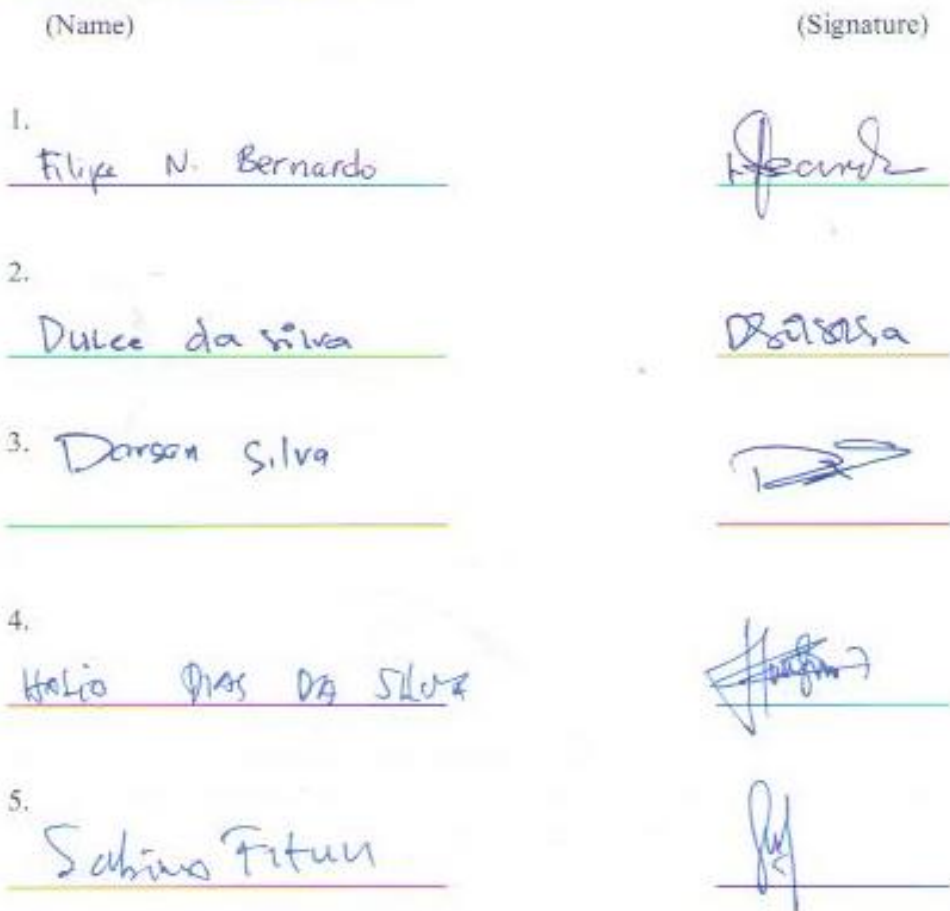 (Name) (Signature)
1.
Filipe N. Bernardo
2.
Dulce da silva
3. Darsan Silva
4.
HALIO DIAS DA SILVA
5.
Sabino Fitun